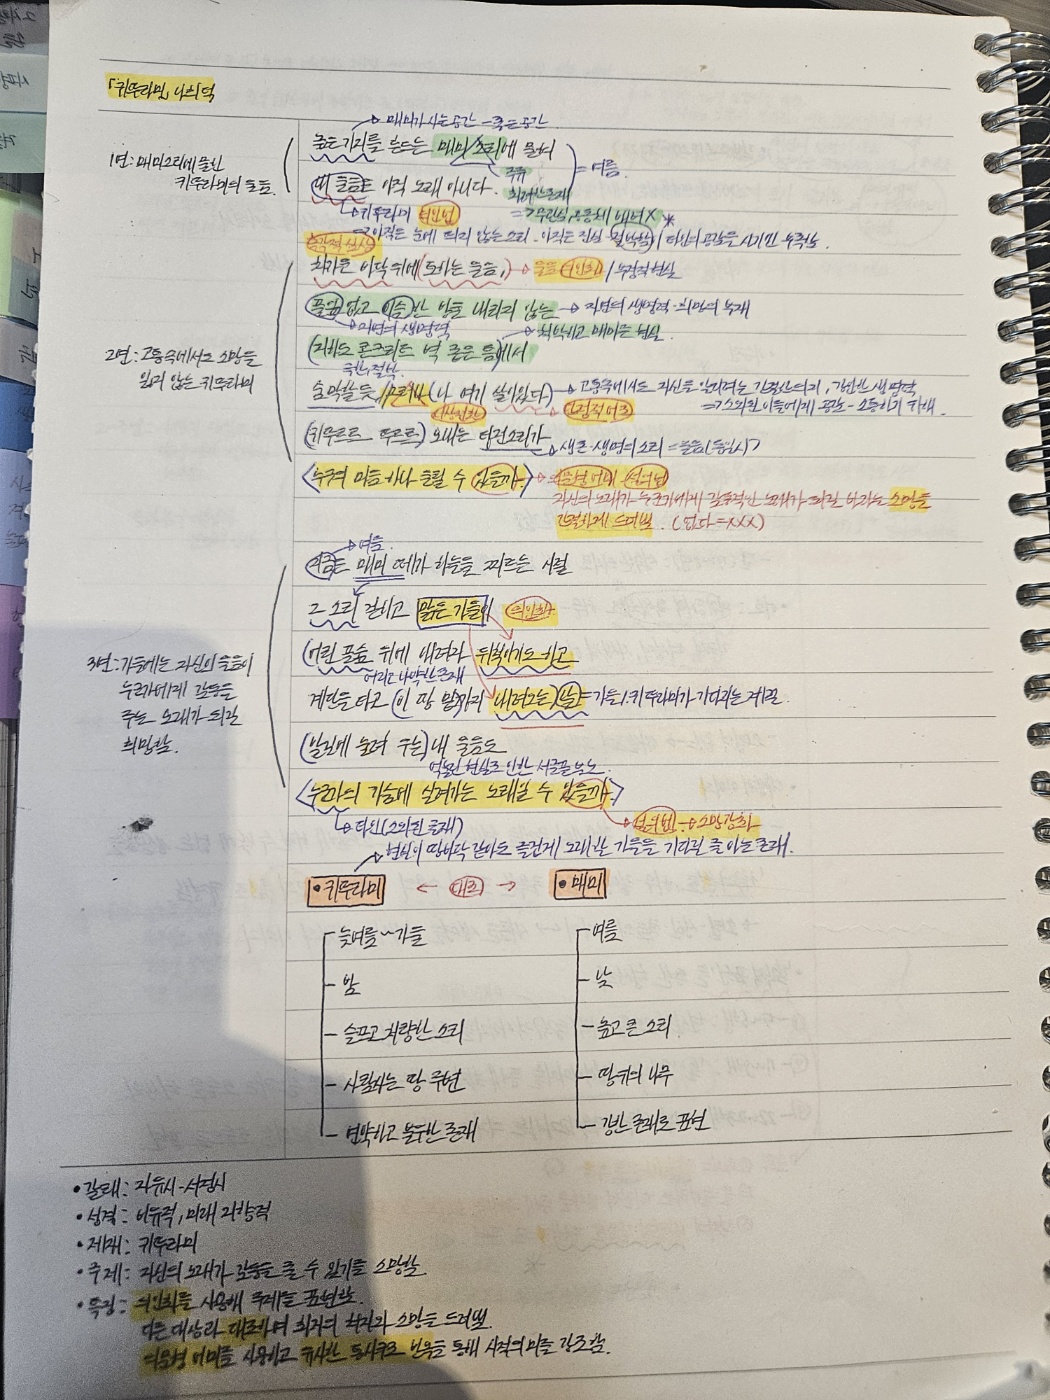 「귀뚜라미」 나희덕
매미가 사는 공간 - 높은 공간
1연: 매미소리에 묻힌
귀뚜라미의 울음
높은 가지를 흔드는 매미 소리에 묻혀
= 여름
내 울음은 아직 노래 아니다.
귀뚜라미 의인법
차가운 바닥 위에 토하는 울음,
→ 울음 의인화 / 부정적 현실
풀잎 없고 이슬 한 방울 내리지 않는
→ 자연의 생명력·희망의 부재
→ 자연의 생명력
지하도 콘크리트 벽 좁은 틈에서
2연: 고통속에서도 소망을
잃지 않는 귀뚜라미
숨막힐 듯, 그러나 나 여기 살아있다
귀뚜르르 뚜르르 보내는 타전소리가
→ 생존·생명의 소리 = 울음(동일시)
누구의 마음 하나 울릴 수 있을까.
자신의 노래가 누군가에게 감동적인 노래가 되길 바라는 소망을
간절하게 드러냄. (없다=XXX)
→ 여름
지금은 매미 떼가 하늘을 찌르는 시절
그 소리 걷히고 맑은 가을이 의인화
어린 풀숲 위에 내려와 뒤척이기도 하고
어리고 나약한 존재
계단을 타고 이 땅 밑까지 내려오는 날
= 가을, 귀뚜라미가 기다리는 계절
3연: 가을에는 자신의 울음이
누군가에게 감동을
주는 노래가 되길
희망함.
발길에 눌려 우는 내 울음도
누군가의 가슴에 실려가는 노래일 수 있을까.
→ 타인(소외된 존재)
설의법 → 소망 강화
• 귀뚜라미 ← 대조 → • 매미
늦여름~가을
여름
밤
낮
슬프고 처량한 소리
높고 큰 소리
사람사는 땅 주변
땅위의 나무
연약하고 불우한 존재
강한 존재로 표현
• 갈래: 자유시·서정시
• 성격: 비유적, 미래 지향적
• 제재: 귀뚜라미
• 주제: 자신의 노래가 감동을 줄 수 있기를 소망함
• 특징: 의인화를 사용해 주제를 표현함.
다른 대상과 대조하며 화자의 처지와 소망을 드러냄.
의문형 어미를 사용하고 유사한 통사구조 반복을 통해 시적의미를 강조함.